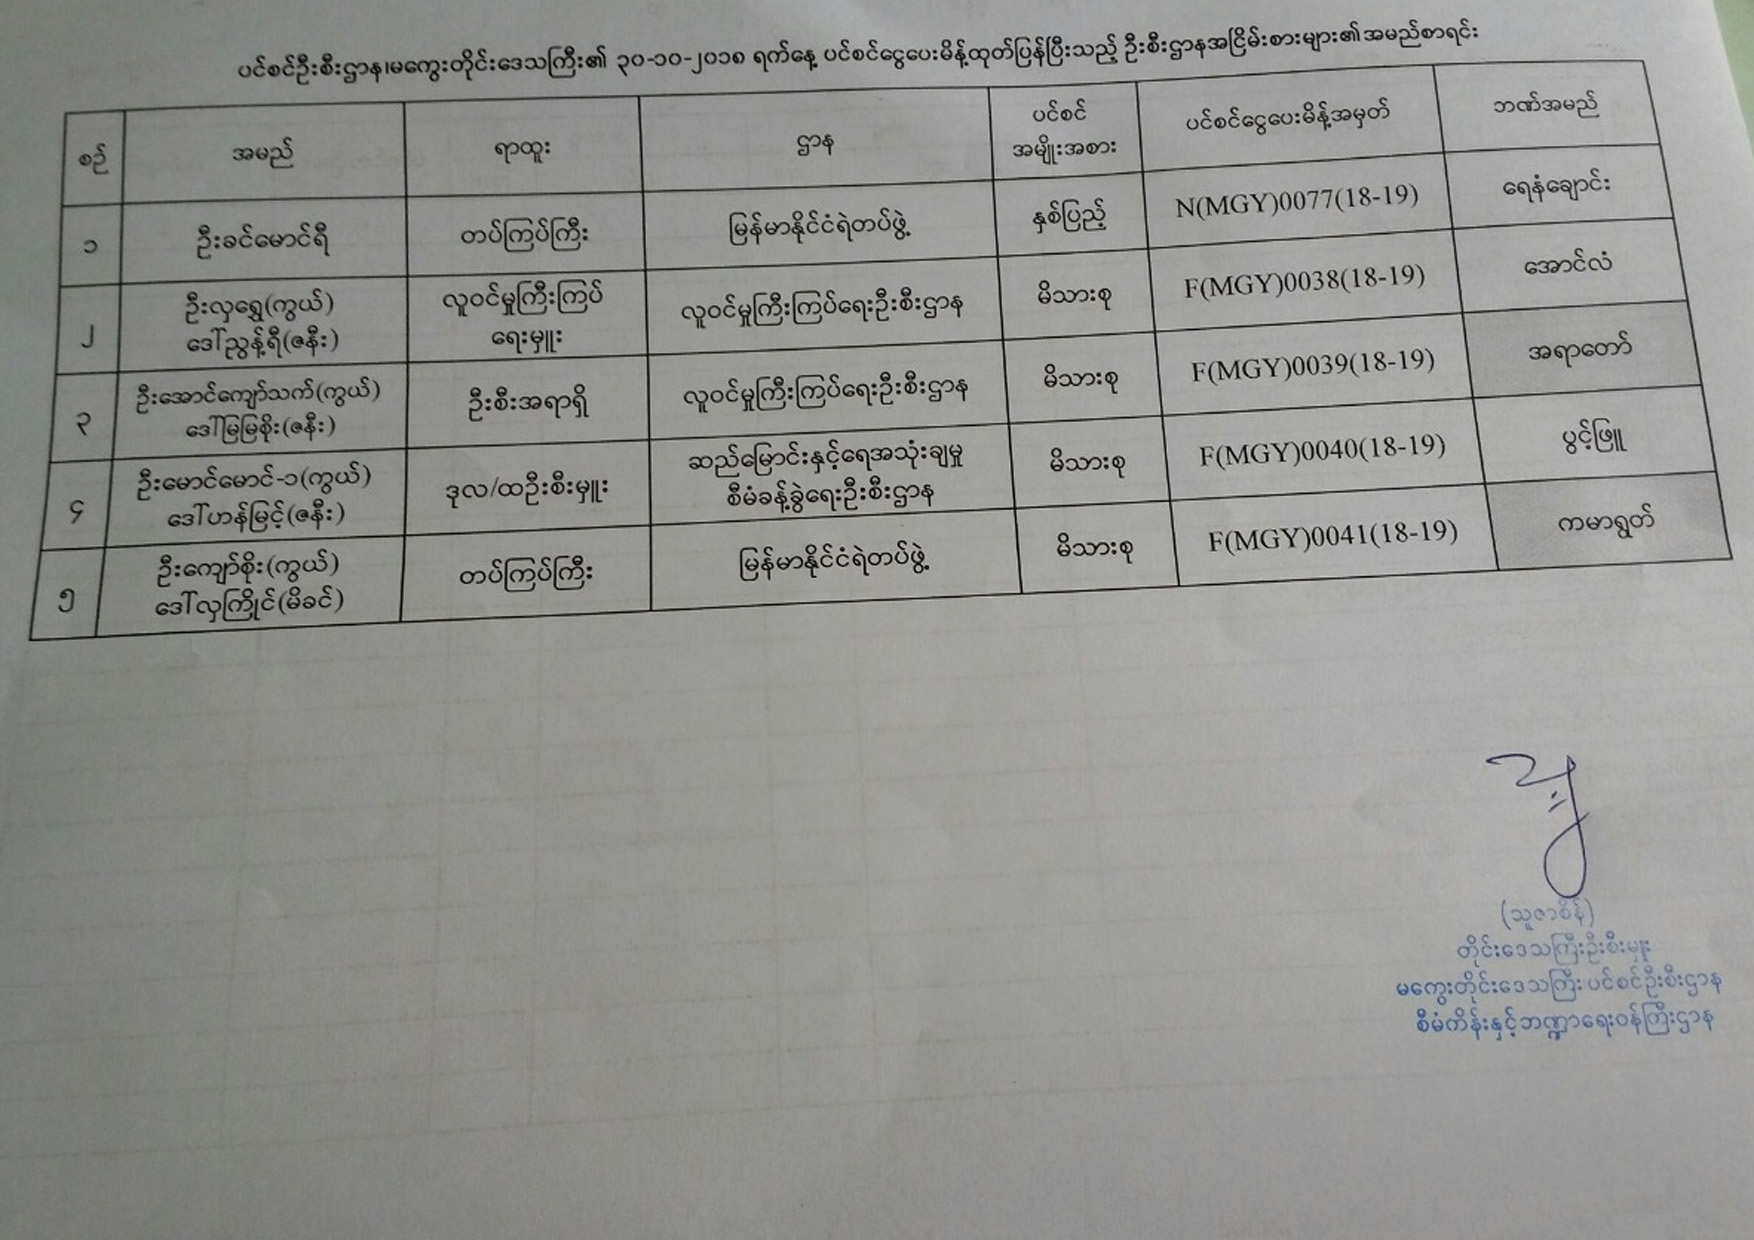 ပင်စင်ဦးစီးဌာန၊မကွေးတိုင်းဒေသကြီး၏ ၃၀-၁၀-၂၀၁၈ ရက်နေ့ ပင်စင်ငွေပေးမိန့်ထုတ်ပြန်ပြီးသည့် ဦးစီးဌာနအငြိမ်းစားများ၏အမည်စာရင်း
စဉ် အမည် ရာထူး ဌာန ပင်စင် အမျိုးအစား ပင်စင်ငွေပေးမိန့်အမှတ် ဘဏ်အမည်
၁ ဦးခင်မောင်ရီ တပ်ကြပ်ကြီး မြန်မာနိုင်ငံရဲတပ်ဖွဲ့ နှစ်ပြည့် N(MGY)0077(18-19) ရေနံချောင်း
၂ ဦးလှရွှေ(ကွယ်) ဒေါ်ညွန့်ရီ(ဇနီး) လူဝင်မှုကြီးကြပ် ရေးမှူး လူဝင်မှုကြီးကြပ်ရေးဦးစီးဌာန မိသားစု F(MGY)0038(18-19) အောင်လံ
၃ ဦးအောင်ကျော်သက်(ကွယ်) ဒေါ်မြမြစိုး(ဇနီး) ဦးစီးအရာရှိ လူဝင်မှုကြီးကြပ်ရေးဦးစီးဌာန မိသားစု F(MGY)0039(18-19) အရာတော်
၄ ဦးမောင်မောင်-၁(ကွယ်) ဒေါ်ဟန်မြင့်(ဇနီး) ဒုလ/ထဦးစီးမှူး ဆည်မြောင်းနှင့်ရေအသုံးချမှု စီမံခန့်ခွဲရေးဦးစီးဌာန မိသားစု F(MGY)0040(18-19) ပွင့်ဖြူ
၅ ဦးကျော်စိုး(ကွယ်) ဒေါ်လှကြိုင်(မိခင်) တပ်ကြပ်ကြီး မြန်မာနိုင်ငံရဲတပ်ဖွဲ့ မိသားစု F(MGY)0041(18-19) ကမာရွတ်
(သူဇာစိန်)
တိုင်းဒေသကြီးဦးစီးမှူး
မကွေးတိုင်းဒေသကြီးပင်စင်ဦးစီးဌာန
စီမံကိန်းနှင့်ဘဏ္ဍာရေးဝန်ကြီးဌာန